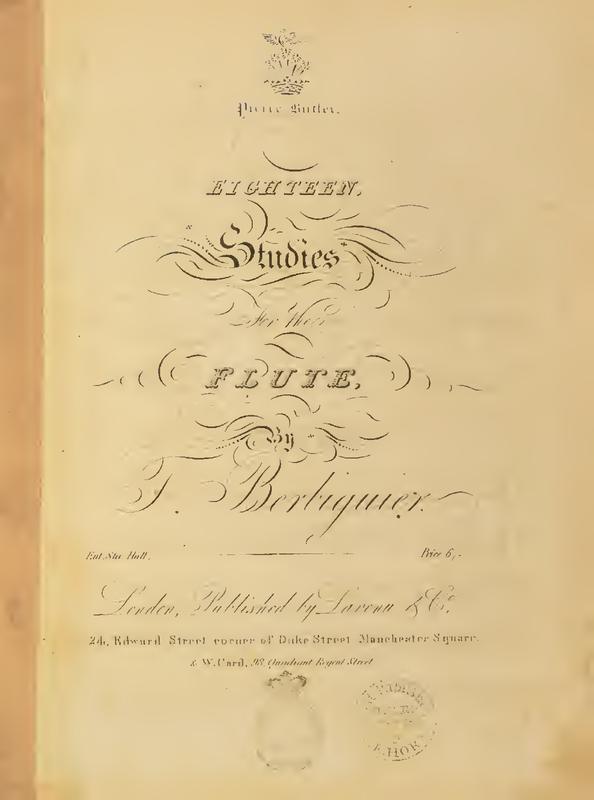 Pierce Butler.
EIGHTEEN,
Studies
For the
FLUTE,
By
T. Berbiguier.
Ent. Sta. Hall.
Price 6/-
London, Published by Lavenu & Co.
24, Edward Street corner of Duke Street Manchester Square.
& W. Card, 98, Quadrant Regent Street